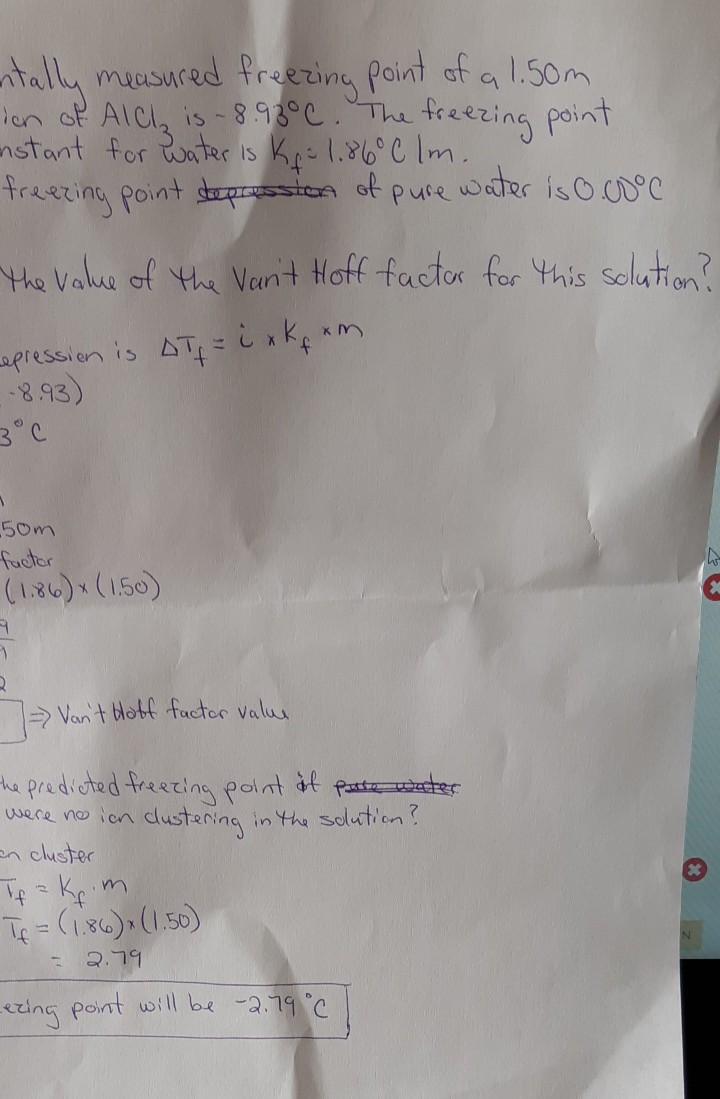 ntally measured freezing point of a 1.50m
ion of AlCl₃ is -8.93°C. The freezing point
nstant for water is Kf = 1.86°C/m.
freezing point depression of pure water is 0.00°C
the value of the Van't Hoff factor for this solution?
epression is ΔTf = i × Kf × m
-8.93)
3°C
50m
factor
(1.86) × (1.50)
9
2
⇒ Van't Hoff factor value
he predicted freezing point if pure water
were no ion clustering in the solution?
on cluster
Tf = Kf · m
Tf = (1.86) × (1.50)
= 2.79
ezing point will be -2.79°C
N